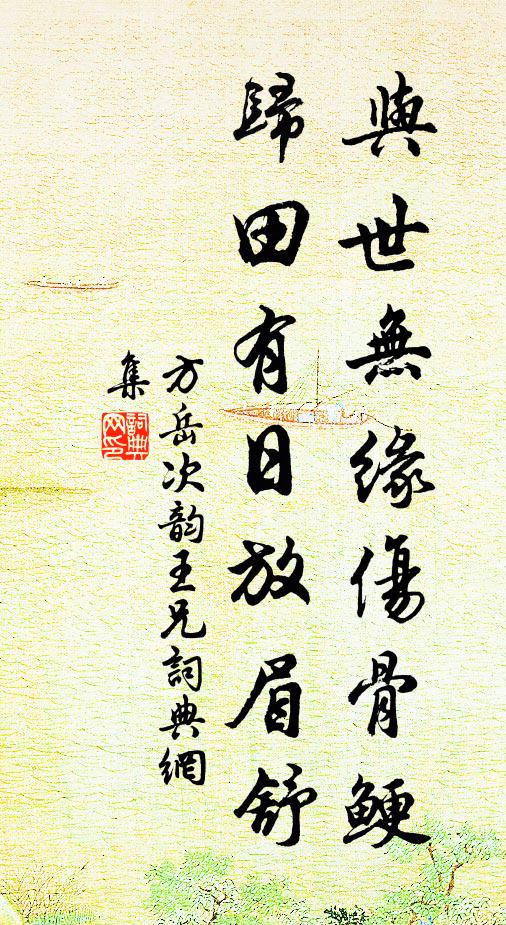 與世無緣傷骨鯁
歸田有日放眉舒
方岳次韵王兄詞典網
集
詞典網印